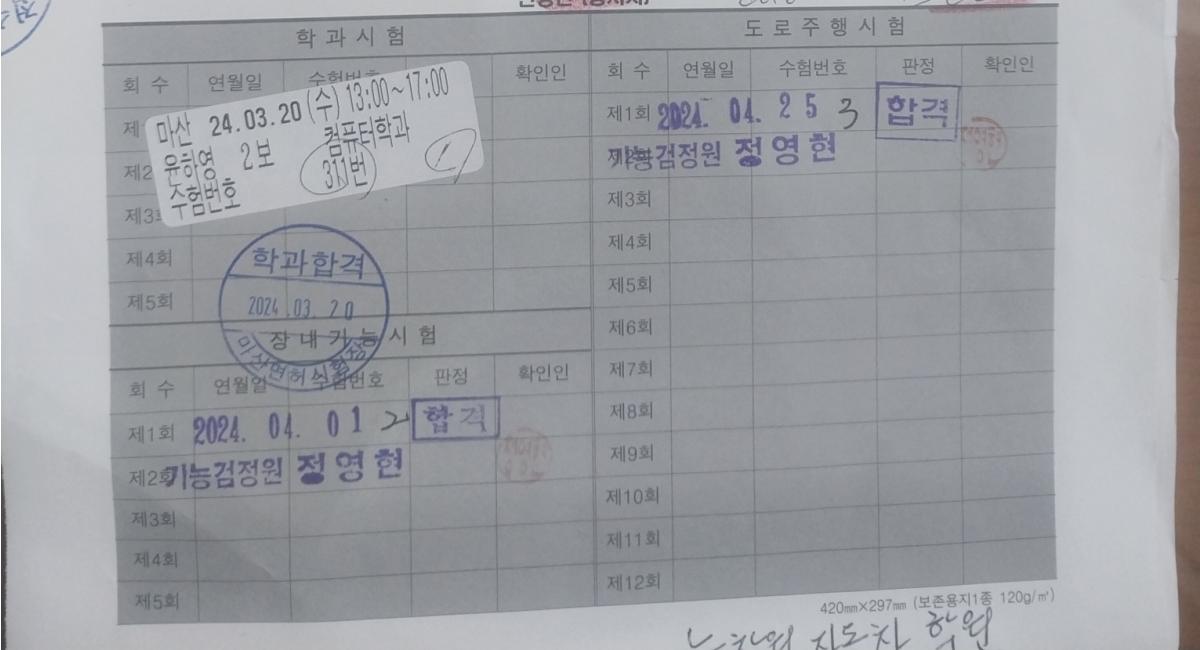 학 과 시 험
회 수 연월일 수험번호 확인인
마산 24.03.20 (수) 13:00~17:00
유하영 2보 컴퓨터학과
수험번호 311번
제4회
제5회
학과합격
2024.03.20
마산면허시험장
장 내 기 능 시 험
회 수 연월일 수험번호 판정 확인인
제1회 2024. 04. 01 2 합격
제2회 기능검정원 정영현
제3회
제4회
제5회
도 로 주 행 시 험
회 수 연월일 수험번호 판정 확인인
제1회 2024. 04. 25 3 합격
제2회 기능검정원 정영현
제3회
제4회
제5회
제6회
제7회
제8회
제9회
제10회
제11회
제12회
420㎜×297㎜ (보존용지1종 120g/㎡)
자동차 학원